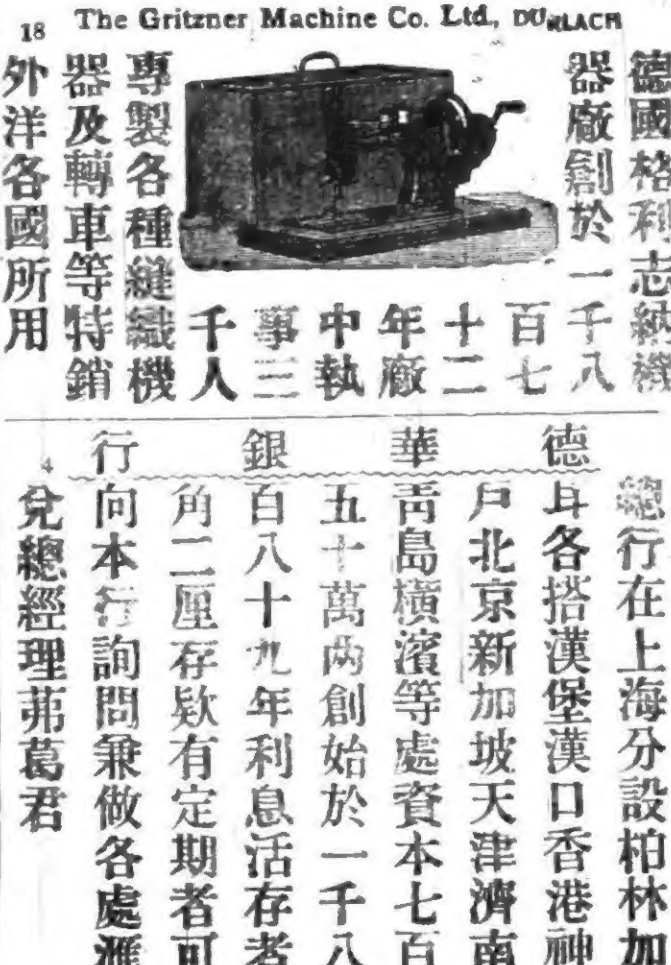 18 The Gritzner Machine Co. Ltd., DURLACH
德國格利志納機
器廠創於一千八
百七
十二
年廠
中執
事三
千人
專製各種縫織機
器及轉車等特銷
外洋各國所用
德華銀行
總行在上海分設柏林加
耳各搭漢堡漢口香港神
戶北京新加坡天津濟南
青島橫濱等處資本七百
五十萬兩創始於一千八
百八十九年利息活存者
角二厘存欵有定期者可
向本行詢問兼做各處滙
兌總經理茀葛君
4